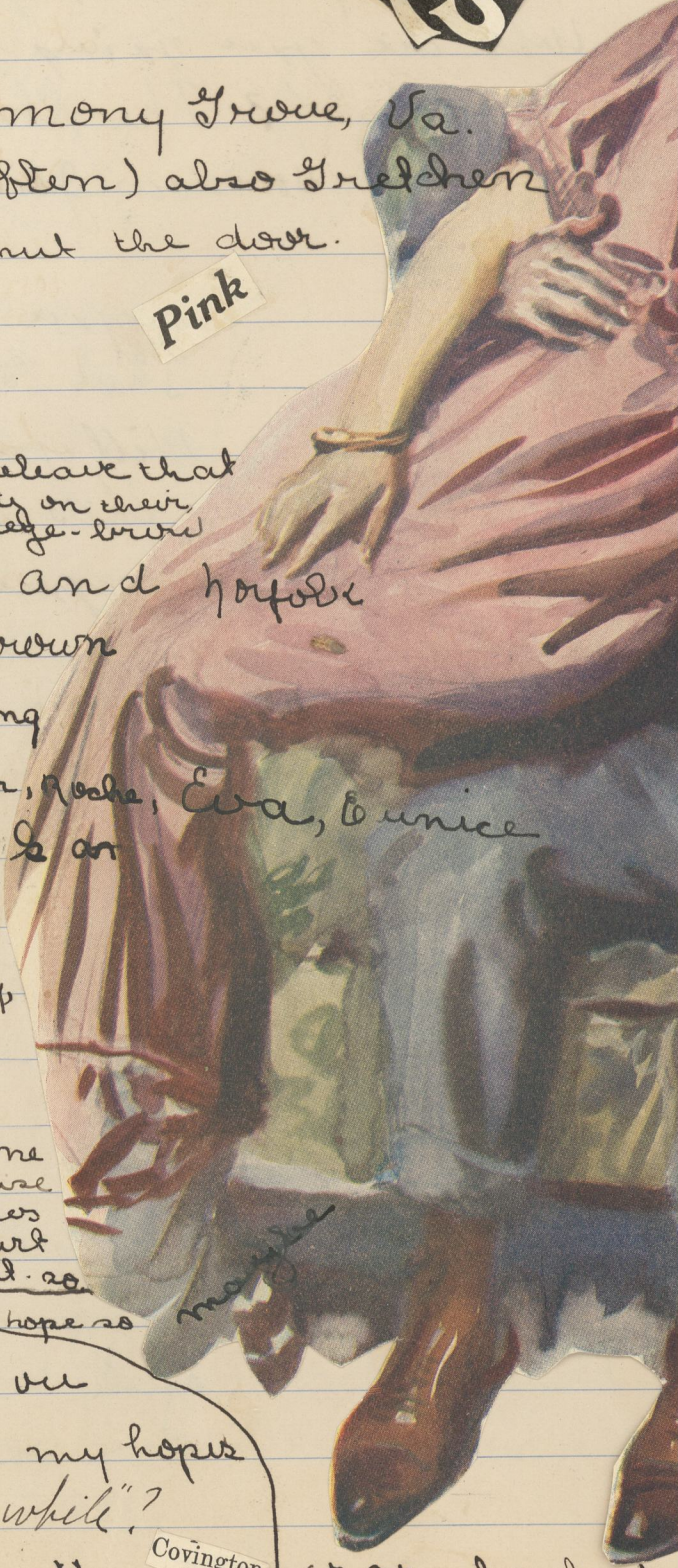 mony Grove, Va.
ften) also Gretchen
hut the door.
Pink
eleave that
on their
eye-brow
and Norfolk
rown
ng
Roche, Eva, Eunice
Is an
me
ise
es
urt
t. so
hope so
maybe
ou
my hopes
while"?
Covington